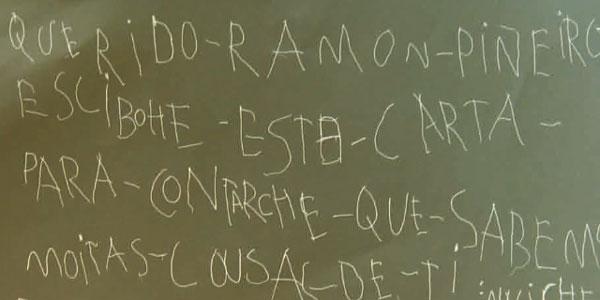 QUERIDO-RAMON-PIÑEIRO
ESCIBOHE-ESTA-CARTA-
PARA-CONTARCHE-QUE-SABEM
MOITAS-COUSAS-DE-TI